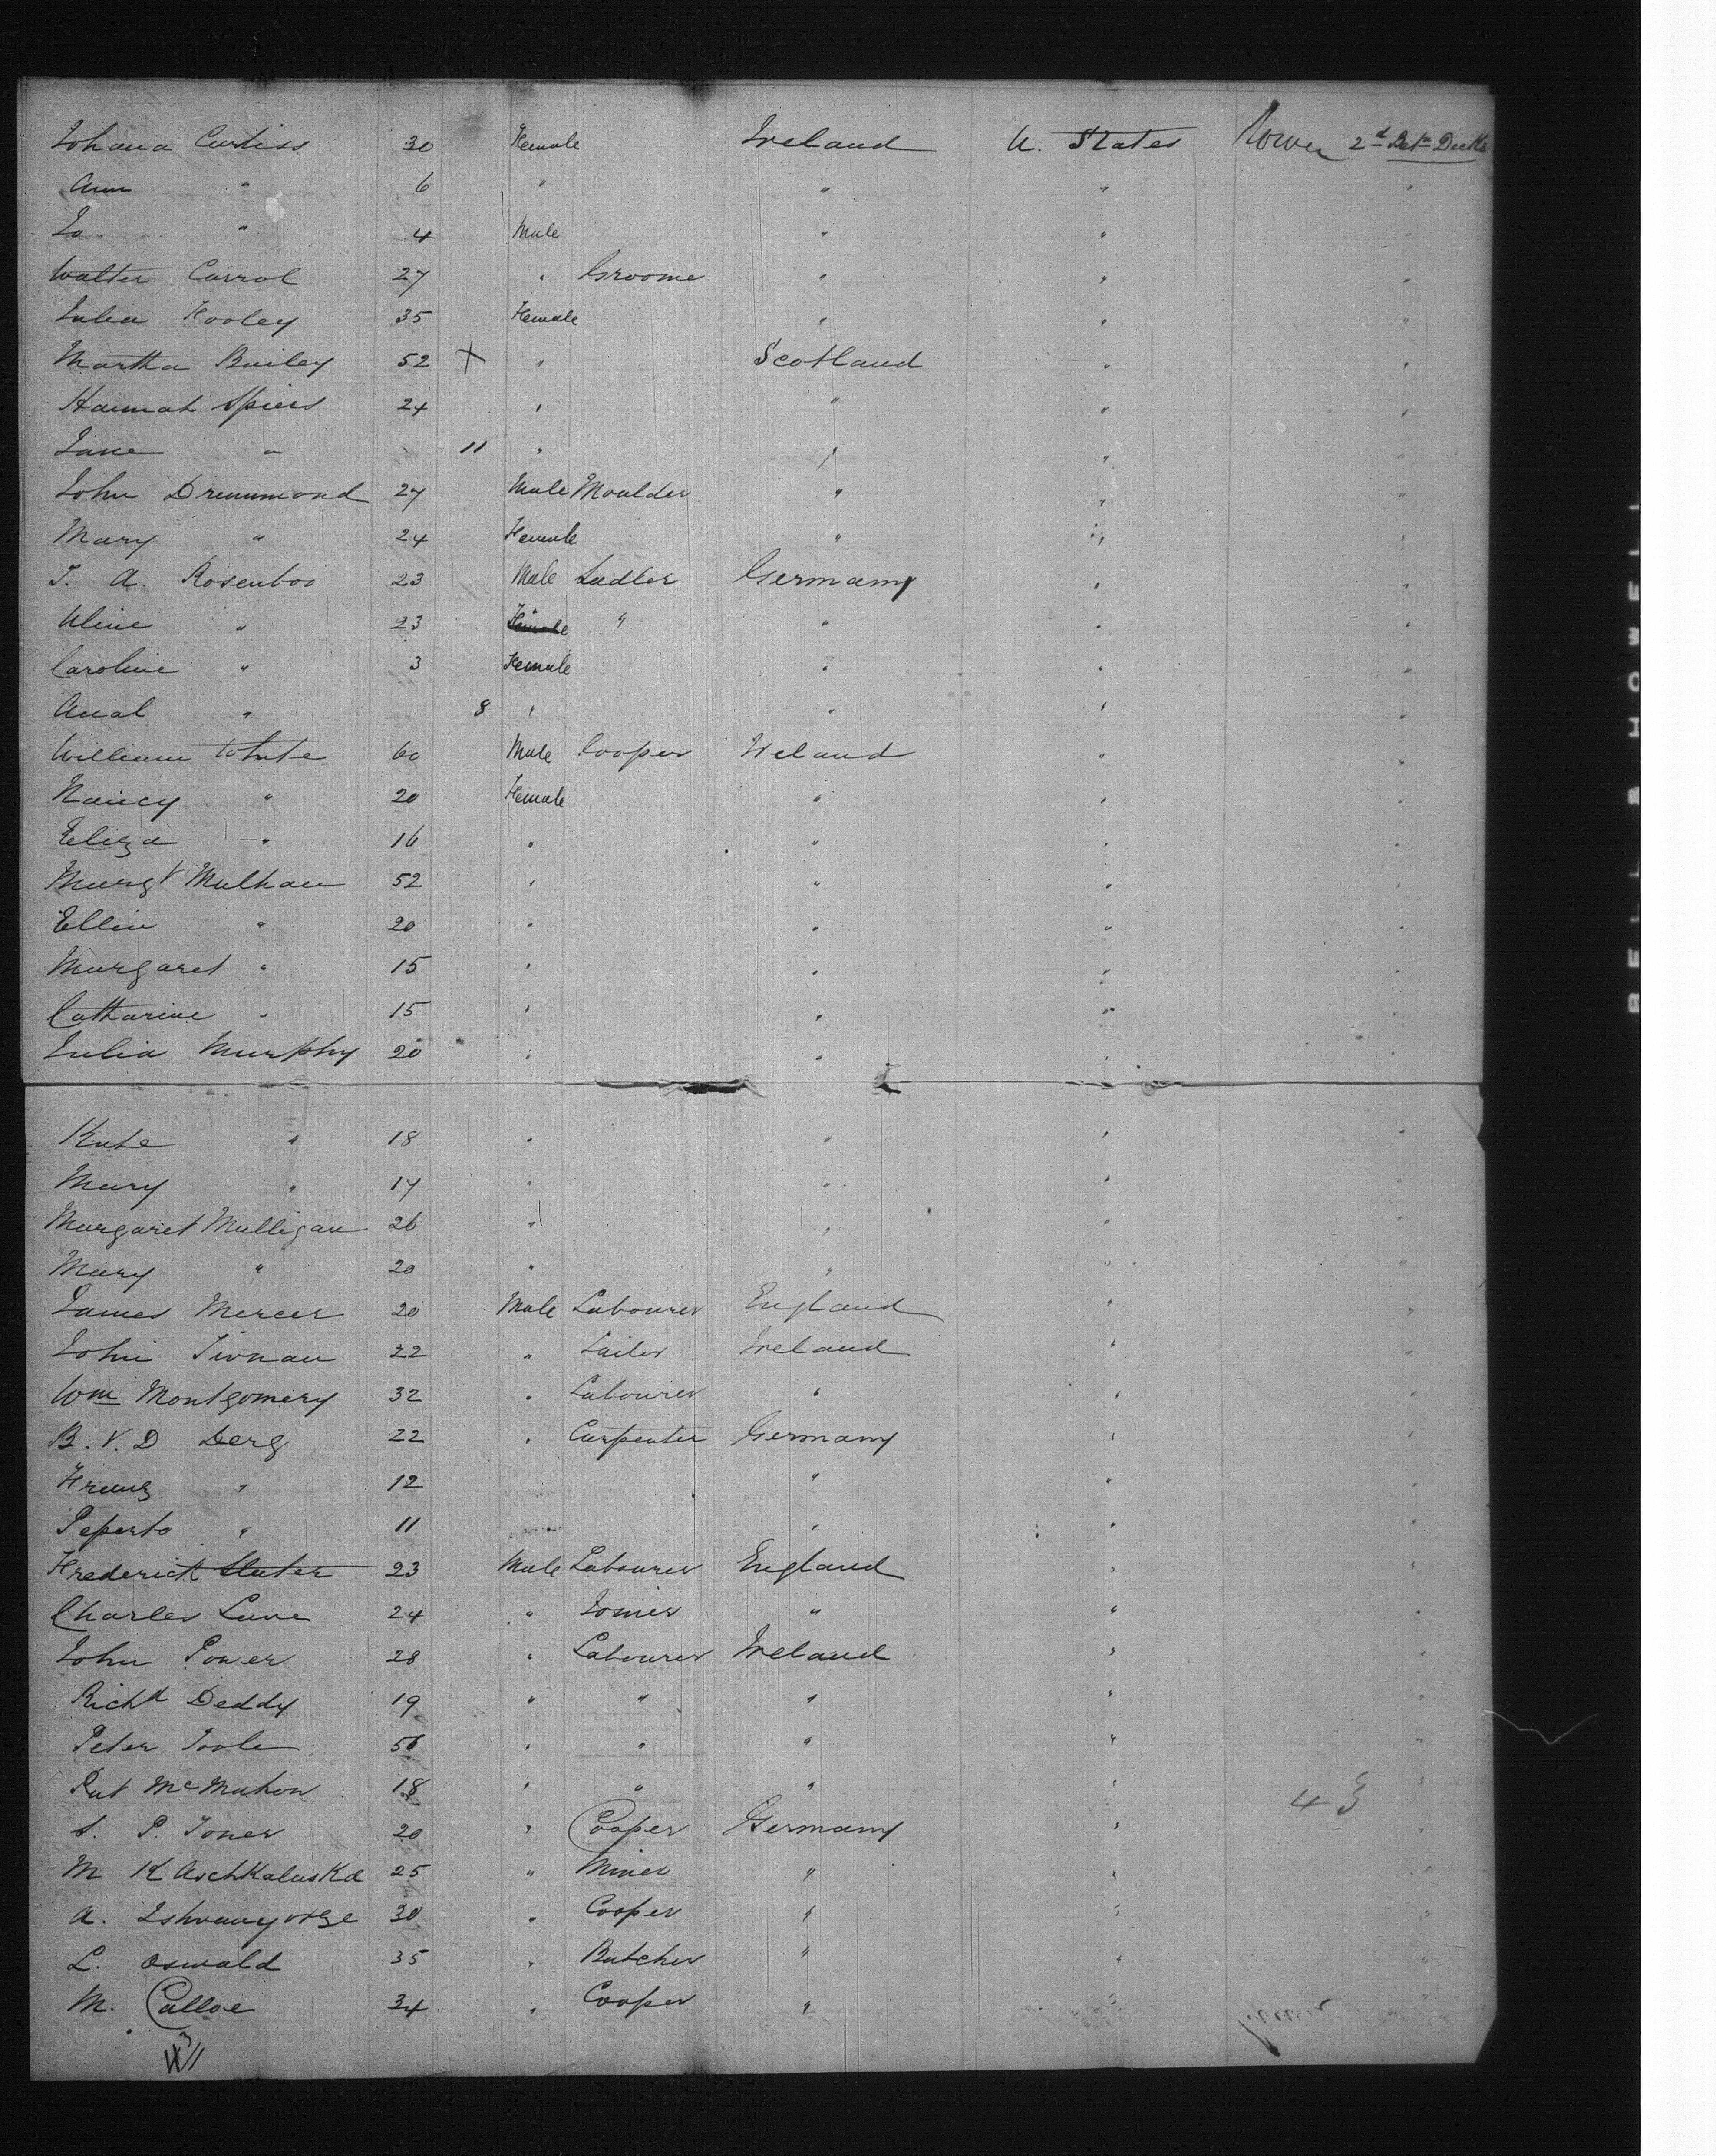 Johana Curtiss 30 Female Ireland U. States Lower 2d Betn Decks
Ann " 6 " " " "
Jo. " 4 Male " " "
Walter Carrol 27 " Groome " " "
Julia Hooley 35 Female " " "
Martha Bailey 52 X " Scotland " "
Hannah Spiers 24 " " " "
Jane " 11 " " " "
John Drummond 27 Male Moulder " " "
Mary " 24 Female " " "
T. A. Rosenboo 23 Male Sadler Germany " "
Aline " 23 Female " " " "
Caroline " 3 Female " " "
Anal " 8 " " " "
William White 60 Male Cooper Ireland " "
Nancy " 20 Female " " "
Eliza " 16 " " " "
Margt Mulhau 52 " " " "
Ellin " 20 " " " "
Margaret " 15 " " " "
Catharine " 15 " " " "
Julia Murphy 20 " " " "
Kate " 18 " " " "
Mary " 17 " " " "
Margaret Mulligan 26 " " " "
Mary " 20 " " " "
James Mercer 20 Male Labourer England " "
John Tivnan 22 " Tailor Ireland " "
Wm Montgomery 32 " Labourer " " "
B. V. D Derg 22 " Carpenter Germany " "
Franz " 12 " " "
Peperto " 11 " " "
Frederick Slater 23 Male Labourer England " "
Charles Lane 24 " Joiner " " "
John Power 28 " Labourer Ireland " "
Richd Deddy 19 " " " " "
Peter Toole 56 " " " " "
Pat McMahon 18 " " " " "
43
S. P. Toner 20 " Cooper Germany " "
M KaschKaluska 25 " Miner " " "
A. 30 " Cooper " " "
L. Oswald 35 " Butcher " " "
M. Calloe 34 " Cooper " " "
BELL & HOWELL